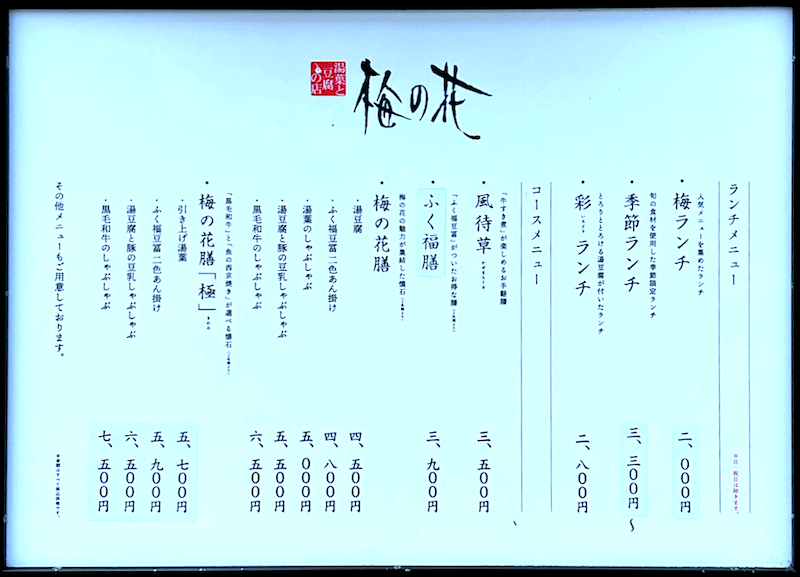 湯葉と
豆腐
の店
梅の花
ランチメニュー
※日・祝日は除きます。
人気メニューを集めたランチ
・梅ランチ 二、〇〇〇円
旬の食材を使用した季節限定ランチ
・季節ランチ 三、三〇〇円〜
とろりととろける湯豆腐が付いたランチ
・彩ランチ 二、八〇〇円
いろどり
コースメニュー
「牛すき煮」が楽しめるお手軽膳
・風待草 三、五〇〇円
かぜまちぐさ
「ふく福豆冨」がついたお得な膳
・ふく福膳 三、九〇〇円
梅の花の魅力が集結した懐石
・梅の花膳
・湯豆腐 四、五〇〇円
・ふく福豆冨 二色あん掛け 四、八〇〇円
・湯葉のしゃぶしゃぶ 五、〇〇〇円
・湯豆腐と豚の豆乳しゃぶしゃぶ 五、五〇〇円
・黒毛和牛のしゃぶしゃぶ 六、五〇〇円
「黒毛和牛」と「魚の西京焼き」が選べる懐石
・梅の花膳「極」
きわみ
・引き上げ湯葉 五、七〇〇円
・ふく福豆冨 二色あん掛け 五、九〇〇円
・湯豆腐と豚の豆乳しゃぶしゃぶ 六、五〇〇円
・黒毛和牛のしゃぶしゃぶ 七、五〇〇円
その他メニューもご用意しております。
※金額はすべて税込価格です。